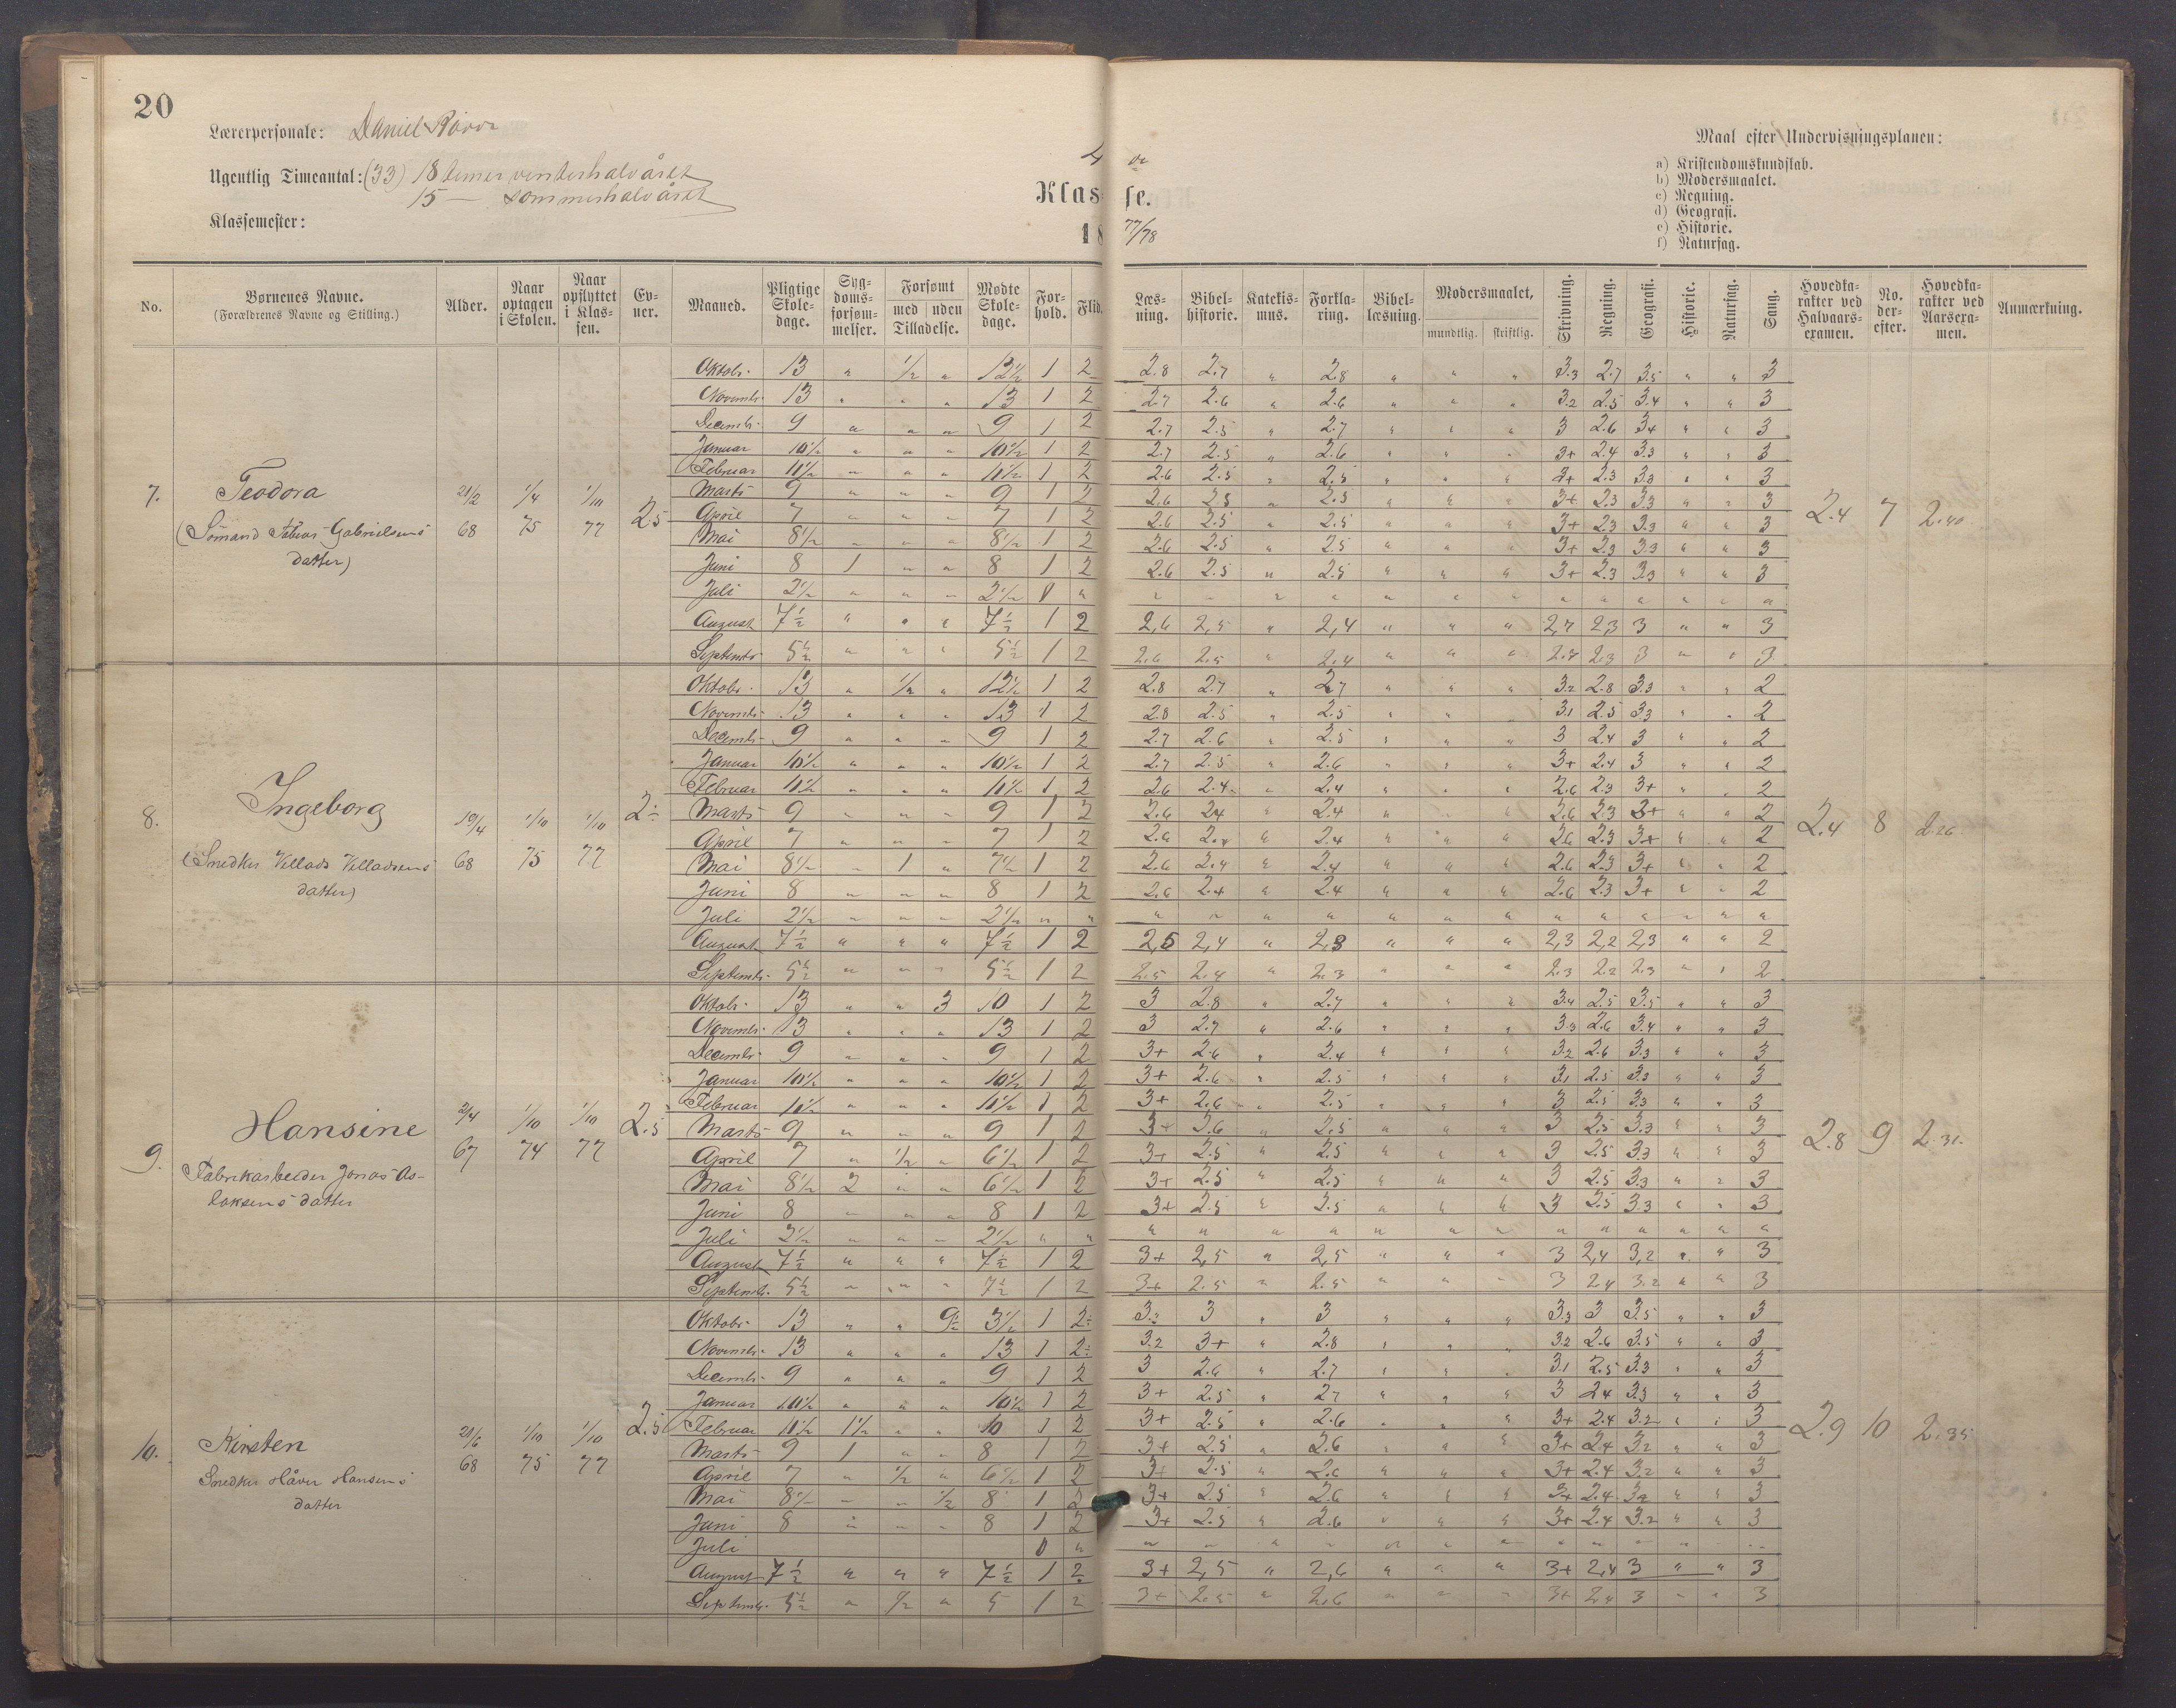 20
Lærerpersonale: Daniel
Ugentlig Timeantal: (33) 18 timer vinterhalvåret
15 — sommerhalvåret
Klassemester:
4 de
Klasse.
18 77/78
Maal efter Undervisningsplanen:
a) Kristendomskundskab.
b) Modersmaalet.
c) Regning.
d) Geografi.
e) Historie.
f) Naturfag.
No. Børnenes Navne. (Forældrenes Navne og Stilling.) Alder. Naar optagen i Skolen. Naar opflyttet i Klassen. Evner. Maaned. Pligtige Skoledage. Sygdomsforsømmelser. Forsømt med uden Tilladelse. Mødte Skoledage. Forhold. Flid. Læsning. Bibelhistorie. Katekismus. Forklaring. Bibellæsning. Modersmaalet, mundtlig. skriftlig. Skrivning. Regning. Geografi. Historie. Naturfag. Sang. Hovedkarakter ved Halvaarsexamen. No. derefter. Hovedkarakter ved Aarsexamen. Anmærkning.
7. Teodora
(Sömand Tobias Gabrielsens
datter)
21/2 68 1/4 75 1/10 77 2.5
Oktobr. 13 " 1/2 " 12 1/2 1 2 2.8 2.7 " 2.8 " " " 3.3 2.7 3.5 " " 3
Novembr. 13 " " " 13 1 2 2.7 2.6 " 2.6 " " " 3.2 2.5 3.4 " " 3
Decembr. 9 " " " 9 1 2 2.7 2.5 " 2.7 " " " 3 2.6 3.4 " " 3
Januar 10 1/2 " " " 10 1/2 1 2 2.7 2.5 " 2.6 " " " 3+ 2.4 3.3 " " 3
Februar 11 1/2 " " " 11 1/2 1 2 2.6 2.5 " 2.5 " " " 3+ 2.3 3.3 " " 3
Marts 9 " " " 9 1 2 2.6 2.5 " 2.5 " " " 3+ 2.3 3.3 " " 3
April 7 " " " 7 1 2 2.6 2.5 " 2.5 " " " 3+ 2.3 3.3 " " 3
Mai 8 1/2 " " " 8 1/2 1 2 2.6 2.5 " 2.5 " " " 3+ 2.3 3.3 " " 3
Juni 8 1 " " 8 1 2 2.6 2.5 " 2.5 " " " 3+ 2.3 3.3 " " 3
Juli 2 1/2 " " " 2 1/2 " " " " " " " " " " " " " "
August 7 1/2 " " " 7 1/2 1 2 2,6 2,5 " 2,4 " " " 2,7 2,3 3 " " 3
Septembr 5 1/2 " " " 5 1/2 1 2 2.6 2.5 " 2.4 " " " 2.7 2.3 3 " " 3
2.4 7 2.40
8. Ingeborg
(Snedker Vellads Velladsens
datter)
19/4 68 1/10 75 1/10 77 2÷
Oktobr. 13 " 1/2 " 12 1/2 1 2 2.8 2.7 " 2.7 " " " 3.2 2.8 3.3 " " 2
Novembr. 13 " " " 13 1 2 2.8 2.5 " 2.5 " " " 3.1 2.5 3.3 " " 2
Decembr. 9 " " " 9 1 2 2.7 2.6 " 2.5 " " " 3 2.4 3 " " 2
Januar 10 1/2 " " " 10 1/2 1 2 2.7 2.5 " 2.6 " " " 3+ 2.4 3 " " 2
Februar 11 1/2 " " " 11 1/2 1 2 2.6 2.4 " 2.4 " " " 2.6 2.3 3+ " " 2
Marts 9 " " " 9 1 2 2.6 2.4 " 2.4 " " " 2.6 2.3 3+ " " 2
April 7 " " " 7 1 2 2.6 2.4 " 2.4 " " " 2.6 2.3 3+ " " 2
Mai 8 1/2 " 1 " 7 1/2 1 2 2.6 2.4 " 2.4 " " " 2.6 2.3 3+ " " 2
Juni 8 " " " 8 1 2 2.6 2.4 " 2.4 " " " 2.6 2.3 3+ " " 2
Juli 2 1/2 " " " 2 1/2 " " " " " " " " " " " " " " "
August 7 1/2 " " " 7 1/2 1 2 2,5 2,4 " 2,3 " " " 2,3 2,2 2,3 " " 2
Septembr. 5 1/2 " " " 5 1/2 1 2 2.5 2.4 " 2.3 " " " 2.3 2.2 2.3 " " 2
2.4 8 2.26
9. Hansine
Fabrikarbeider Jonas As-
laksens datter
2/4 67 1/10 74 1/10 77 2.5
Oktobr. 13 " " 3 10 1 2 3 2.8 " 2.7 " " " 3.4 2.5 3.5 " " 3
Novembr. 13 " " " 13 1 2 3 2.7 " 2.6 " " " 3.3 2.6 3.4 " " 3
Decembr. 9 " " " 9 1 2 3+ 2.6 " 2.4 " " " 3.2 2.6 3.3 " " 3
Januar 10 1/2 " " " 10 1/2 1 2 3+ 2.6 " 2.5 " " " 3.1 2.5 3.3 " " 3
Februar 11 1/2 " " " 11 1/2 1 2 3+ 2.6 " 2.5 " " " 3 2.5 3.3 " " 3
Marts 9 " " " 9 1 2 3+ 2.6 " 2.5 " " " 3 2.5 3.3 " " 3
April 7 " 1/2 " 6 1/2 1 2 3+ 2.5 " 2.5 " " " 3 2.5 3.3 " " 3
Mai 8 1/2 2 " " 6 1/2 1 2 3+ 2.5 " 2.5 " " " 3 2.5 3.3 " " 3
Juni 8 " " " 8 1 2 3+ 2.5 " 2.5 " " " 3 2.5 3.3 " " 3
Juli 2 1/2 " " " 2 1/2 " " " " " " " " " " " " " " "
August 7 1/2 " " " 7 1/2 1 2 3+ 2,5 " 2,5 " " " 3 2,4 3,2 " " 3
Septembr. 5 1/2 " " " 7 1/2 1 2 3+ 2.5 " 2.5 " " " 3 2.4 3.2 " " 3
2.8 9 2.31.
10. Kirsten
Snedker Håver Hansens
datter
21/6 68 1/10 75 1/10 77 2.5
Oktobr 13 " " 9 1/2 3 1/2 1 2÷ 3.2 3 " 3 " " " 3.3 3 3.5 " " 3
Novembr. 13 " " " 13 1 2÷ 3.2 3+ " 2.8 " " " 3.2 2.6 3.5 " " 3
Decembr. 9 " " " 9 1 2 3 2.6 " 2.7 " " " 3.1 2.5 3.3 " " 3
Januar 10 1/2 " " " 10 1/2 1 2 3+ 2.5 " 2.7 " " " 3 2.4 3.3 " " 3
Februar 11 1/2 1 1/2 " " 10 1 2 3+ 2.5 " 2.6 " " " 3+ 2.4 3.2 " " 3
Marts 9 1 " " 8 1 2 3+ 2.5 " 2.6 " " " 3+ 2.4 3.2 " " 3
April 7 " 1/2 " 6 1/2 1 2 3+ 2.5 " 2.6 " " " 3+ 2.4 3.2 " " 3
Mai 8 1/2 " " 1/2 8 1 2 3+ 2.5 " 2.6 " " " 3+ 2.4 3.2 " " 3
Juni 8 " " " 8 1 2 3+ 2.5 " 2.6 " " " 3+ 2.4 3.2 " " 3
Juli " " " " " " " " " " " " "
August 7 1/2 " " " 7 1/2 1 2 3+ 2,5 " 2,6 " " " 3+ 2,4 3 " " 3
Septembr. 5 1/2 " 1/2 " 5 1 2 3+ 2.5 " 2.6 " " " 3+ 2.4 3 " " 3
2.9 10 2.35